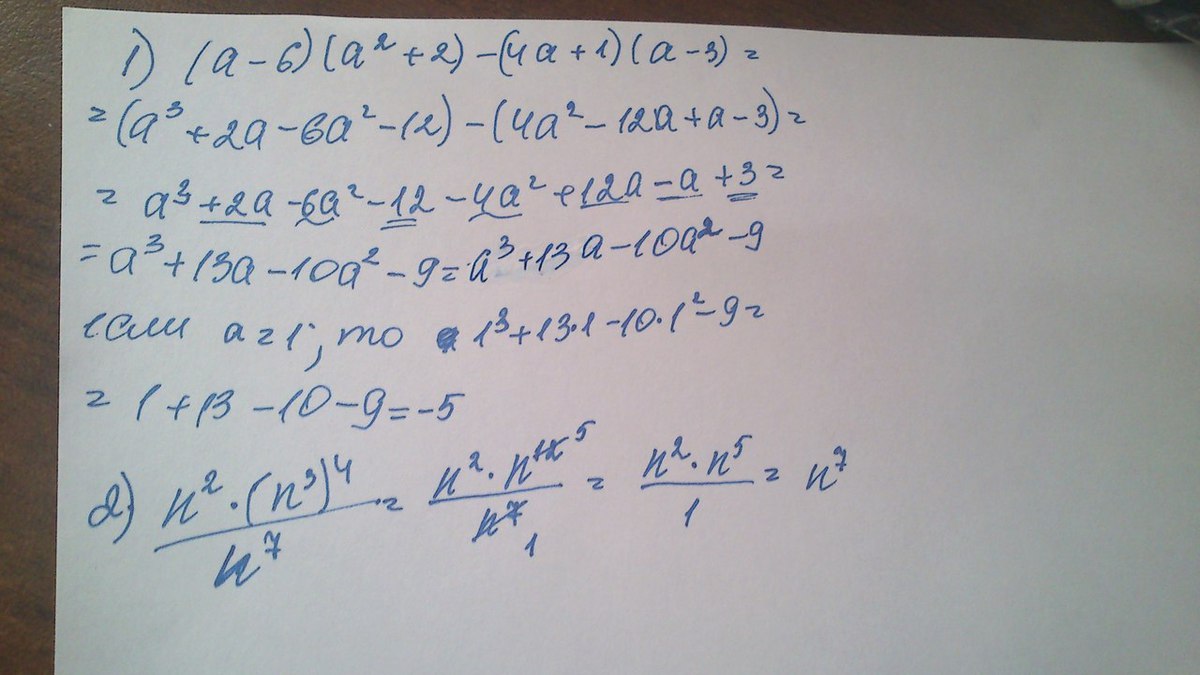 1) (a-6)(a²+2)-(4a+1)(a-3)=
=(a³+2a-6a²-12)-(4a²-12a+a-3)=
= a³+2a-6a²-12-4a²+12a-a+3=
=a³+13a-10a²-9=a³+13a-10a²-9
если a=1; то 1³+13·1-10·1²-9=
= 1+13-10-9=-5
2) n²·(n³)⁴/n⁷ = n²·n¹² ⁵/n⁷ 1 = n²·n⁵/1 = n⁷